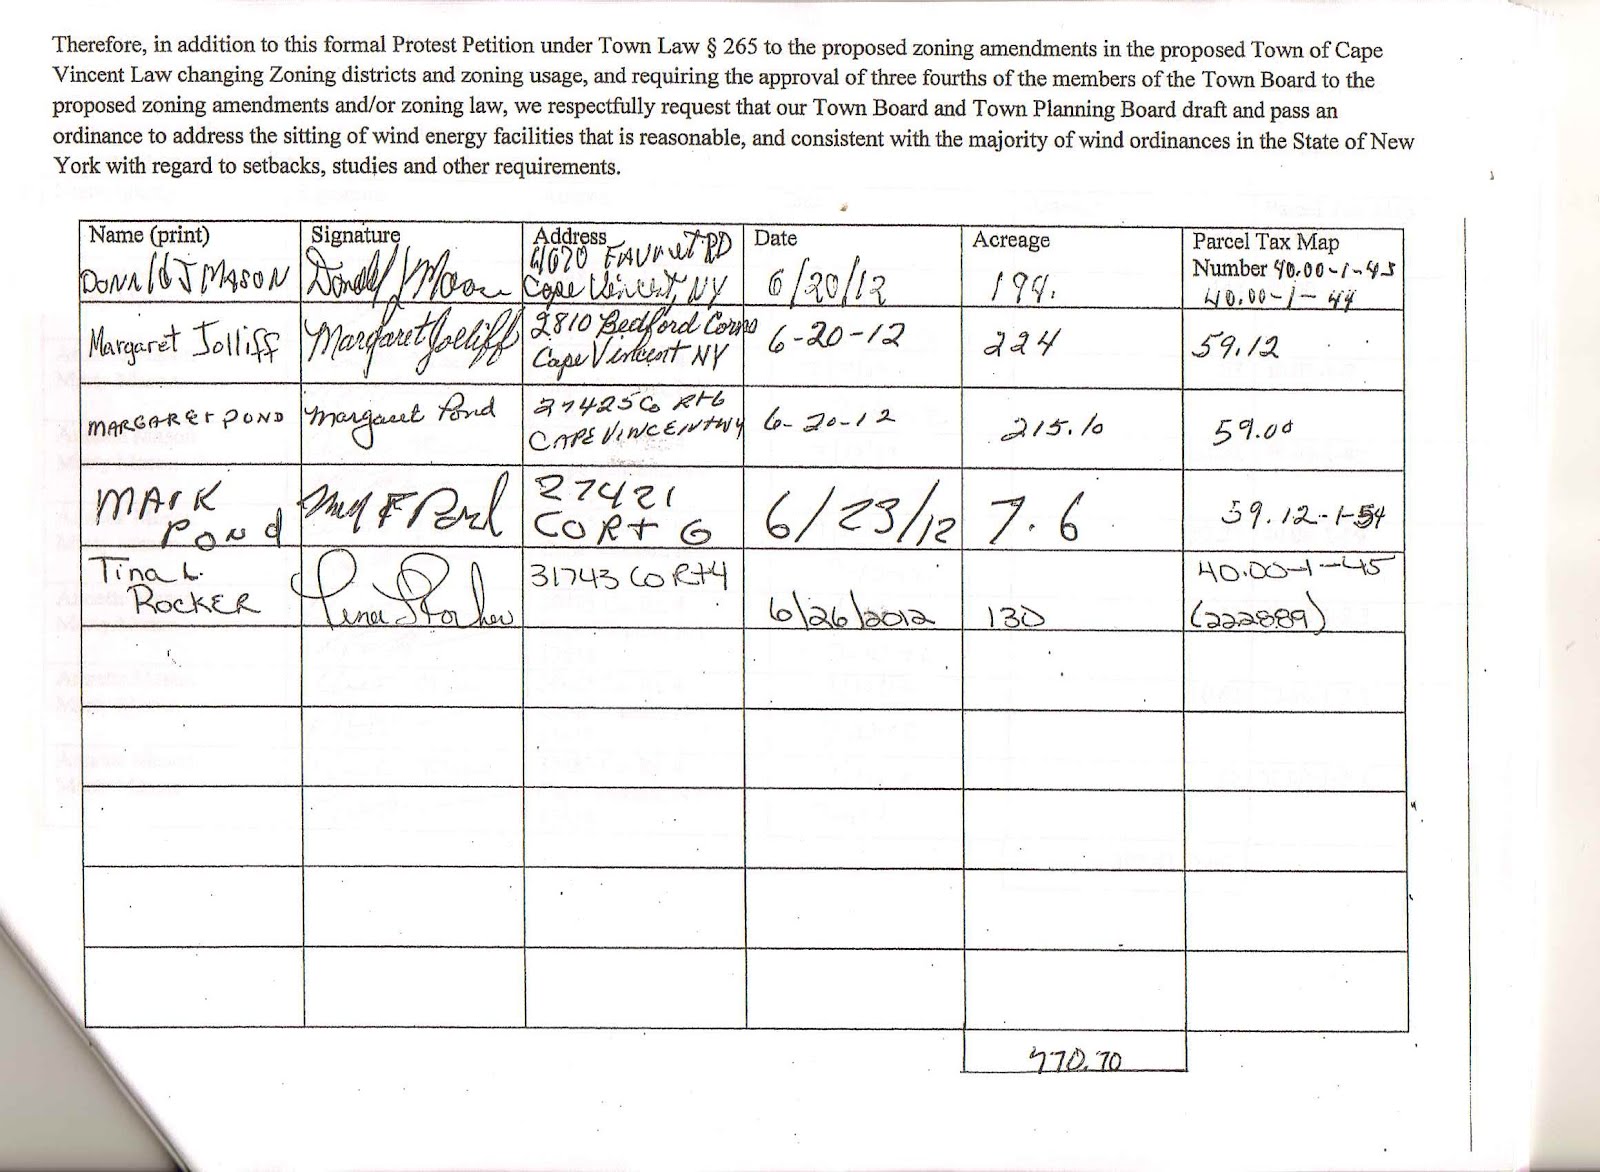 Therefore, in addition to this formal Protest Petition under Town Law § 265 to the proposed zoning amendments in the proposed Town of Cape
Vincent Law changing Zoning districts and zoning usage, and requiring the approval of three fourths of the members of the Town Board to the
proposed zoning amendments and/or zoning law, we respectfully request that our Town Board and Town Planning Board draft and pass an
ordinance to address the sitting of wind energy facilities that is reasonable, and consistent with the majority of wind ordinances in the State of New
York with regard to setbacks, studies and other requirements.
Name (print) Signature Address Date Acreage Parcel Tax Map
Number 40.00-1-43
40.00-1-44
DONAld J MASON Donald J Mason 4670 FAVret RD
Cape Vincent, NY 6/20/12 194.
Margaret Jolliff Margaret Jolliff 2810 Bedford Corns
Cape Vincent NY 6-20-12 224 59.12
MARGAREt POND Margaret Pond 27425 Co Rt 6
CAPE VINCENT NY 6-20-12 215.10 59.00
MArK
POND 27421
CO Rt 6 6/23/12 7.6 59.12-1-54
Tina L.
ROCKER 31743 Co Rt 4 6/26/2012 130 40.00-1-45
(222889)
770.70